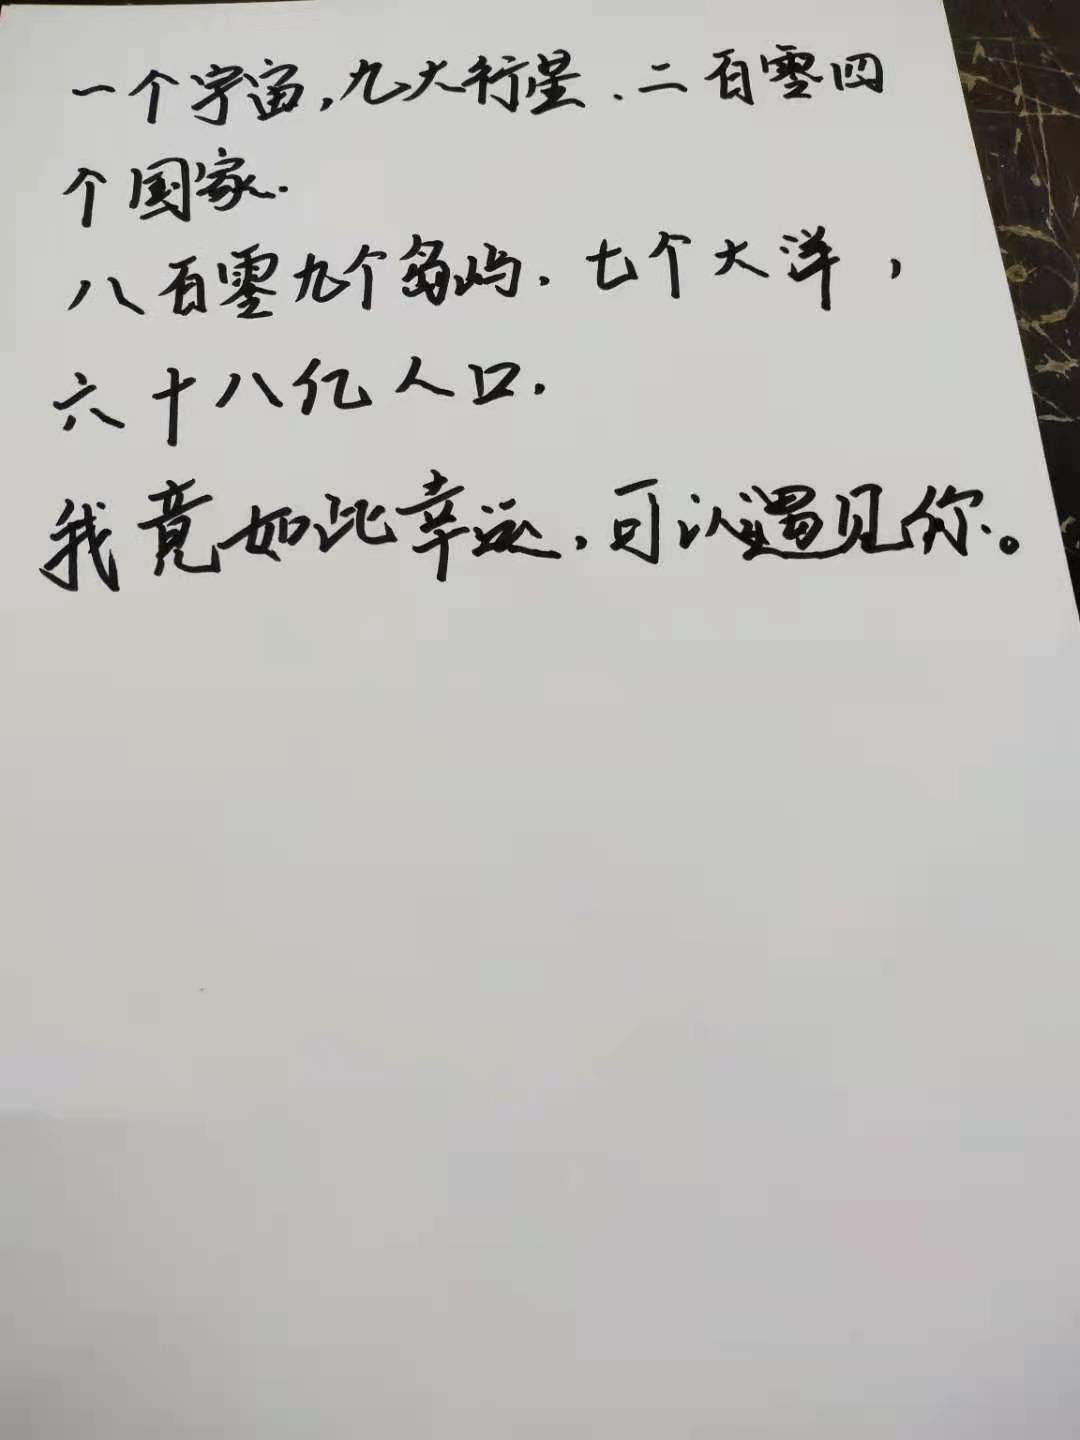 一个宇宙,九大行星.二百零四
个国家.
八百零九个岛屿.七个大洋,
六十八亿人口.
我竟如此幸运,可以遇见你。